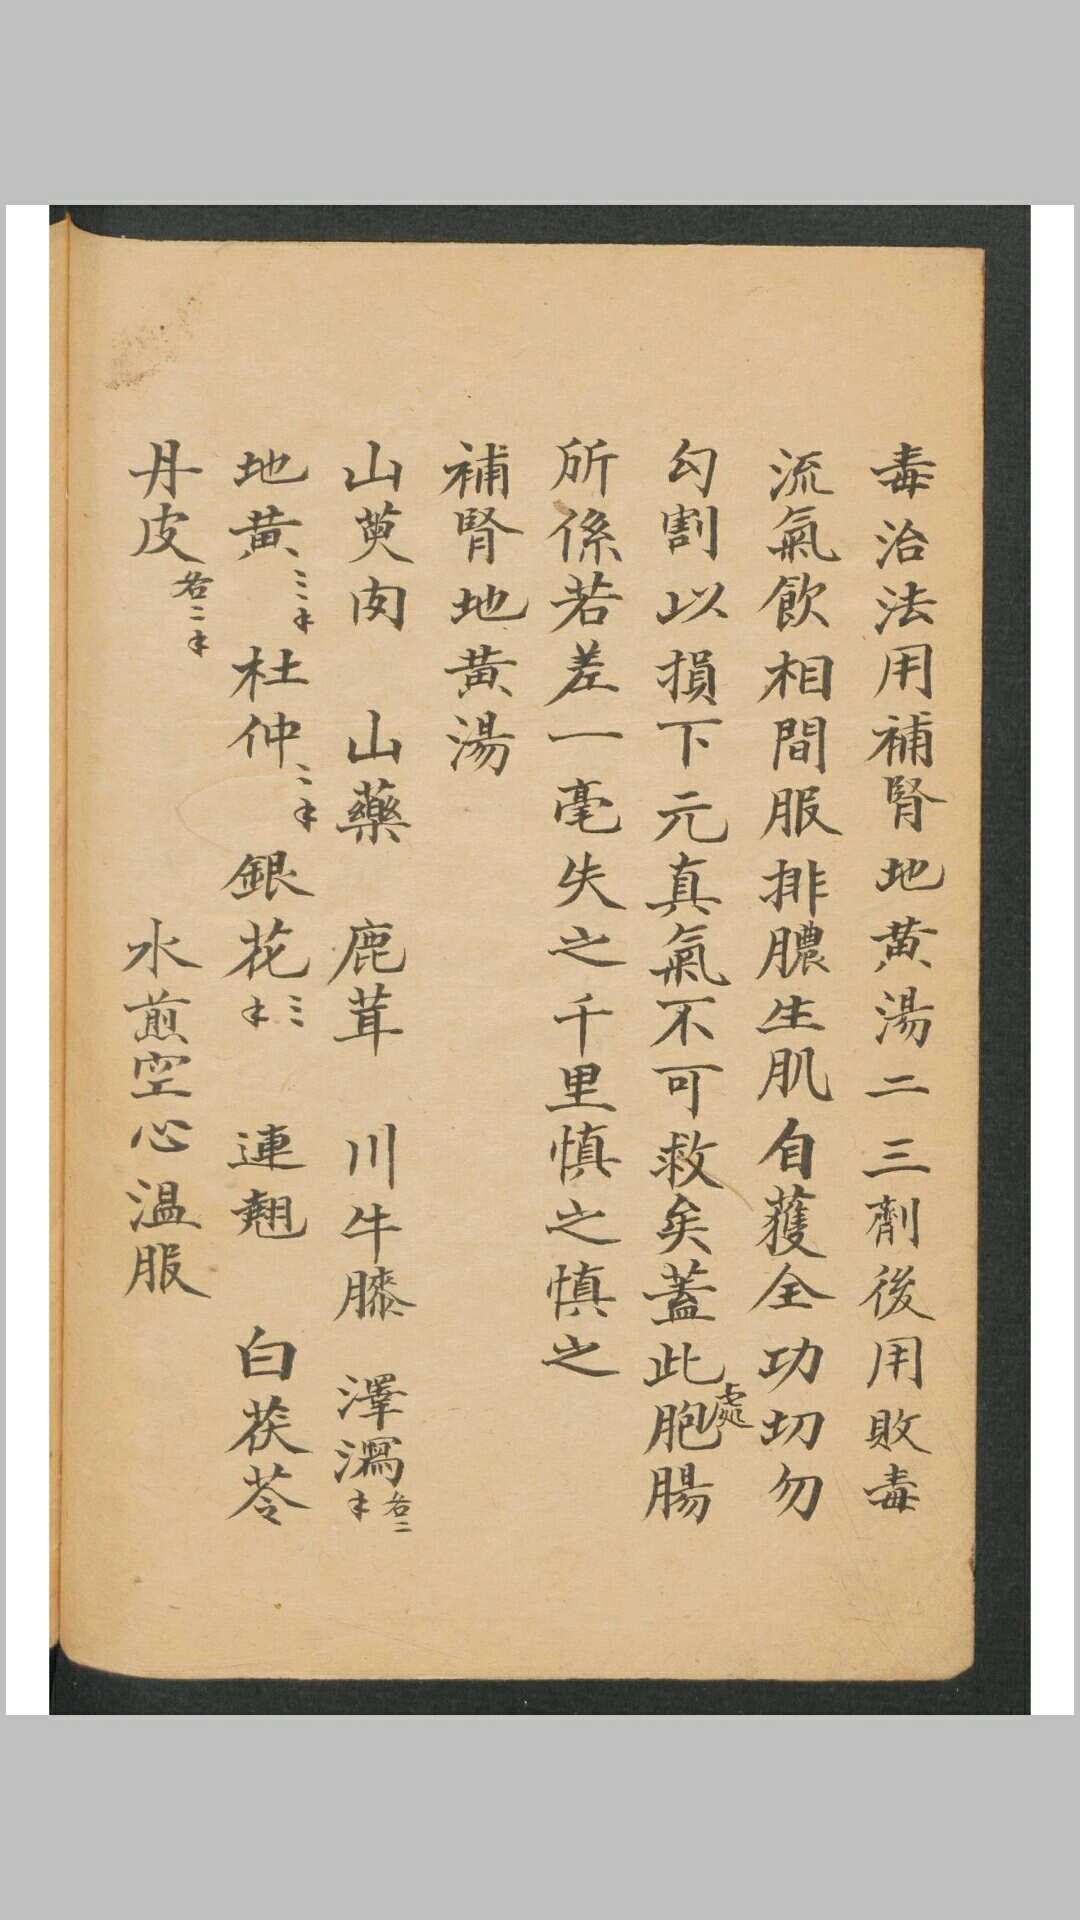 毒治法用補腎地黄湯二三劑後用敗毒
流氣飲相間服排膿生肌自獲全功切勿
勾割以損下元真氣不可救矣蓋此處胞腸
所係若差一毫失之千里慎之慎之
補腎地黄湯
山萸肉 山藥 鹿茸 川牛膝 澤瀉各二
地黄三 杜仲二 銀花三 連翹 白茯苓
丹皮各二 水煎空心溫服